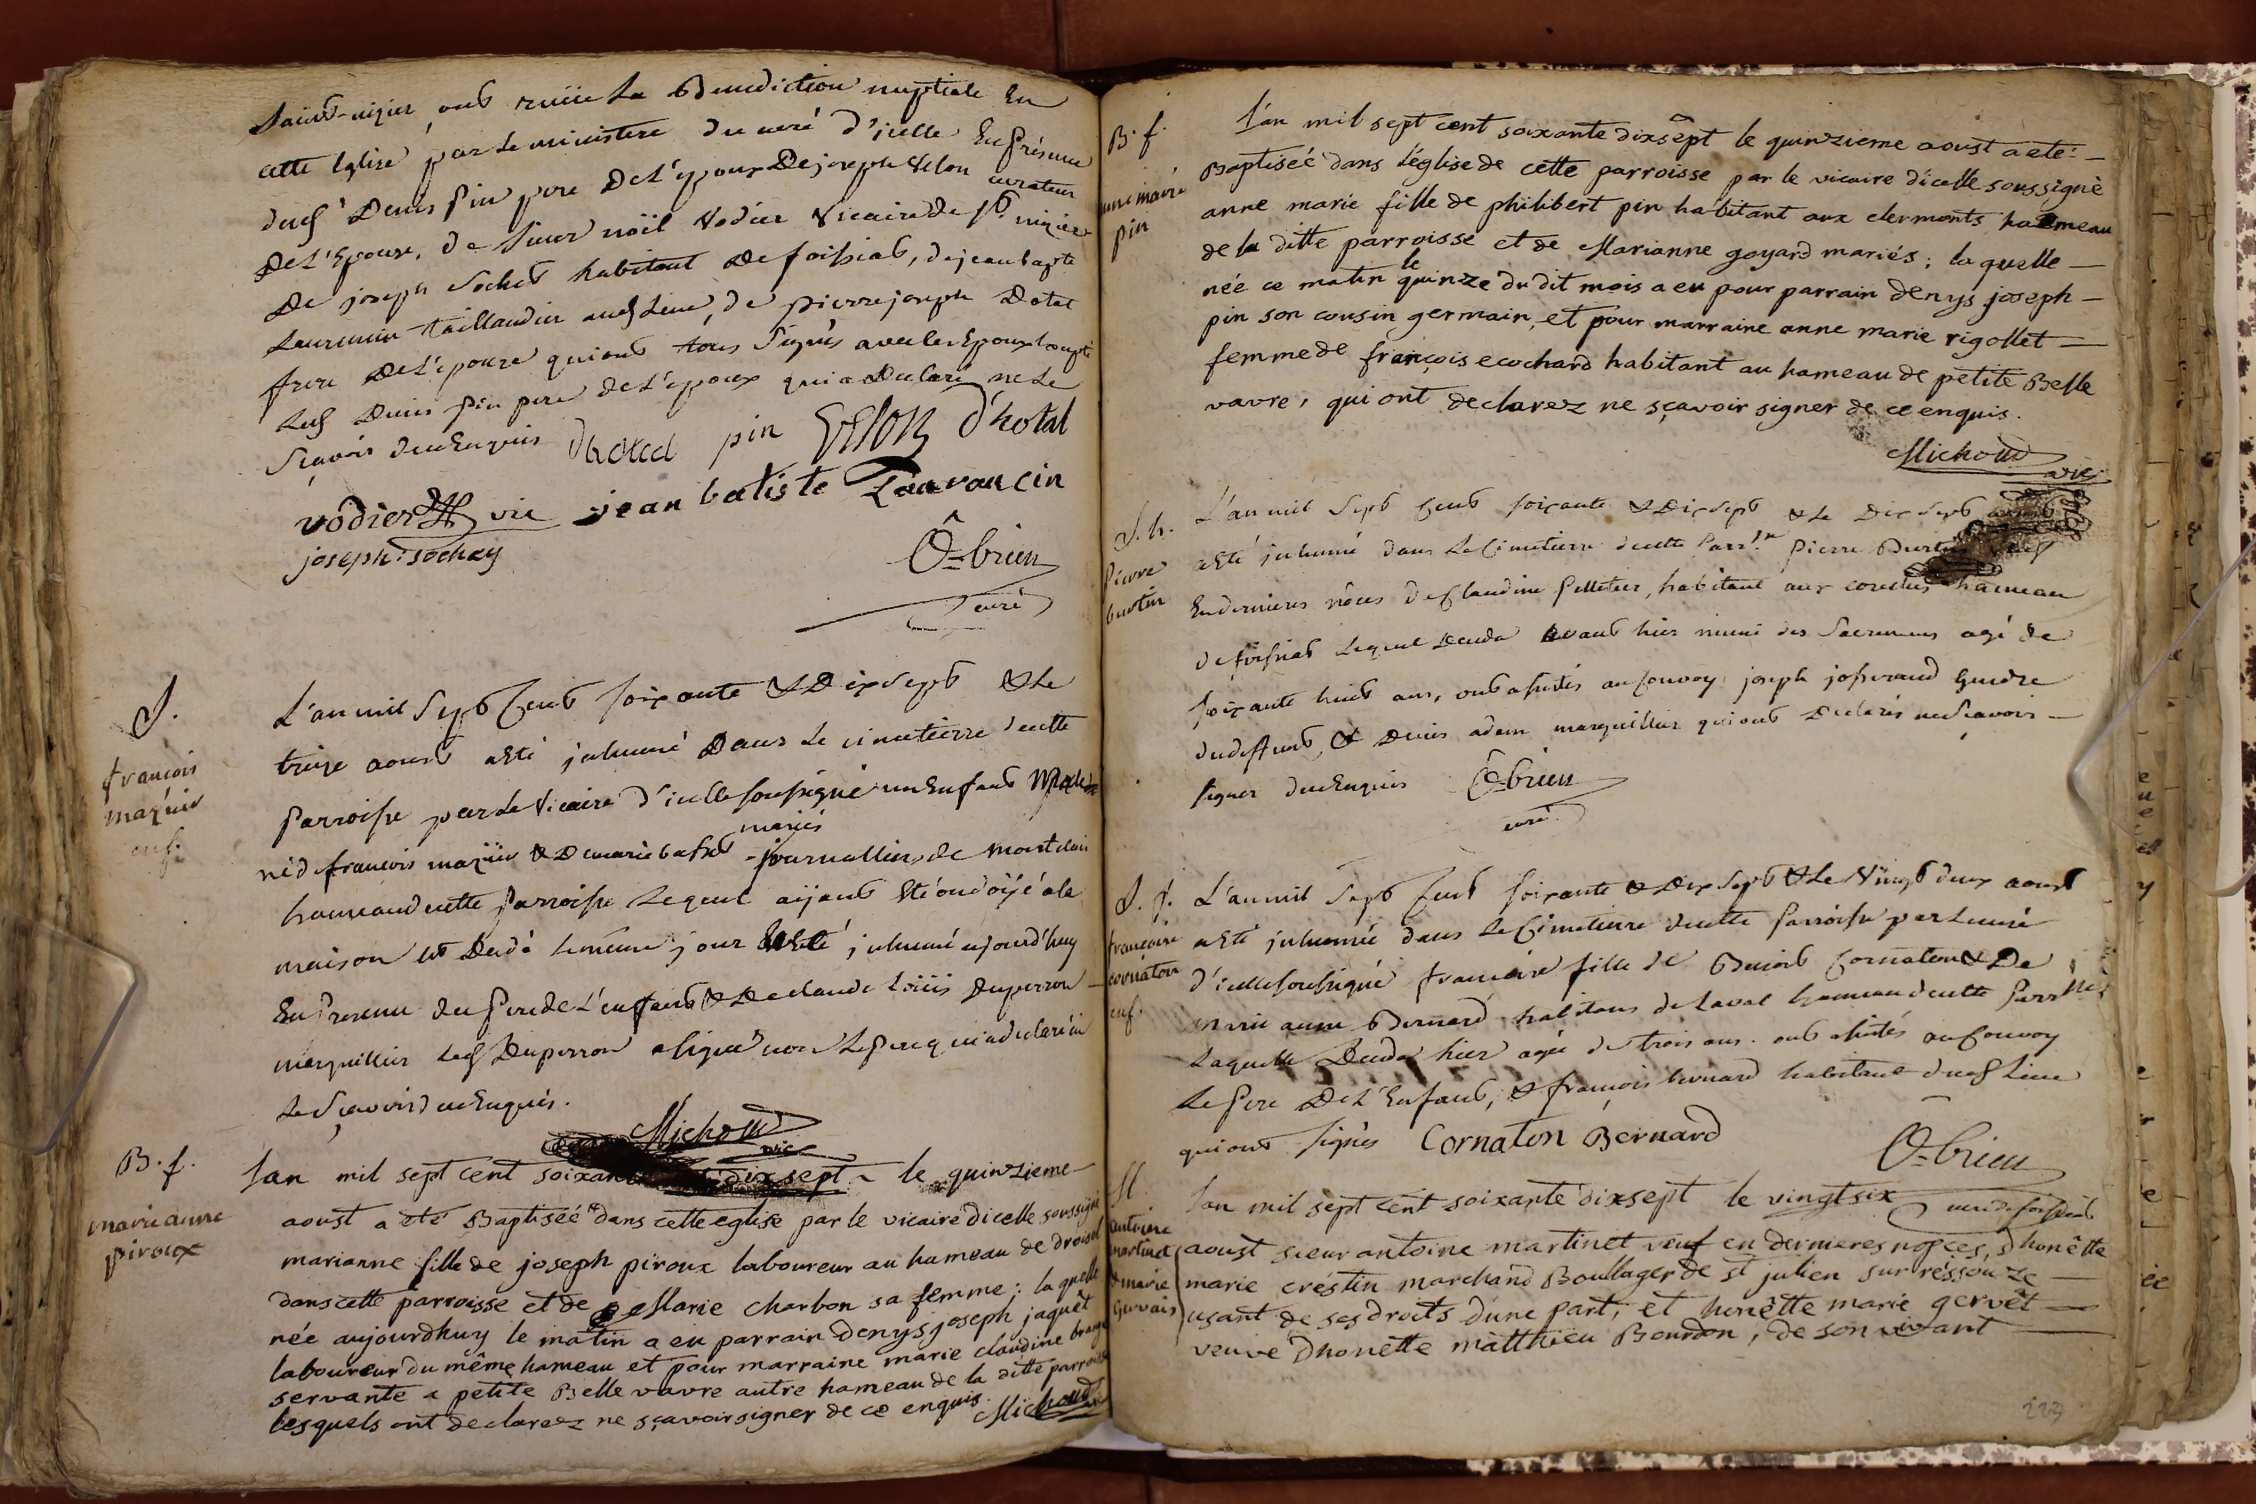 Saint-nizier, ont reciie La Benediction nuptiale En
cette Eglise par Le ministere du curé d'icelle En présence
dud. Denis pin pere De L'epoux De joseph Velon curateur
De L'Epouse, de Sieur nöel Vodier Vicaire de st. nizier
De joseph Sochet habitant De foissiat, de jean baptte
Laurencin taillandier aud. Lieu, de pierre joseph Dotal
frere De L'epouse qui ont tous Signés avec les Epoux Excepté
Led. Denis pin pere de L'epoux qui a Declaré ne Le
Sçavoir de ce Enquis dhotal pin VELON d'hotal
vôdier vic jean batiste Laurancin
joseph: sochay
Ô-brien
curé
S.
françois
mazuir
enf.
L'an mil Sept Cent soixante & Dix Sept & Le
treize aoust a Eté jnhumé Dans Le cimetierre de cette
Parroisse par Le Vicaire d'icelle soussigné un Enfant Male
né d françois maziir & De marie
mariés
journalliers de Montclair
hameau de cette Parroisse Lequel aÿant Eté ondoÿé a la
maison est Decedé le même jour & a Eté jnhumé aujourd'huy
En Presence du Pere de L'enfant & De claude Loüis Duperron
marguillier Led. Duperron a signé non Le Pere qui a declaré ne
Le Sçavoir de ce Enquis.
Michoud
vic
B. f.
marie anne
piroux
Lan mil sept cent soixante dix sept le quinzieme
aoust a eté Baptiseé dans cette eglise par le vicaire dicelle soussigné
marianne fille de joseph piroux laboureur au hameau de droisel
dans cette parroisse et de Marie Charbon sa femme; la quelle
née aujourdhuy le matin a eu parrain denys joseph jaquet
laboureur du même hameau et pour marraine marie claudine
servante a petite Belle vavre autre hameau de la ditte parroisse
lesquels ont declarez ne sçavoir signer de ce enquis. Michoud
B. f.
anne marie
pin
Lan mil sept cent soixante dixsept le quinzieme aoust a eté
Baptiseé dans leglise de cette parroisse par le vicaire dicelle soussigné
anne marie fille de philibert pin habitant aux clermonts hameau
de la ditte parroisse et de Marianne goyard mariés; la quelle
née ce matin le quinze du dit mois a eu pour parrain denys joseph
pin son cousin germain, et pour marraine anne marie rigollet
femme de françois ecochard habitant au hameau de petite Belle
vavre, qui ont declarez ne sçavoir signer de ce enquis.
Michoud
vic
S. h.
Pierre
burtin
L'an mil Sept Cent soixante & Dix Sept & Le Dix Sept
a Eté jnhumé dans Le Cimetierre de cette Parr.se Pierre Burtin veuf
En dernieres nôces De Claudine Pelletier, habitant aux hameau
de foissiat Lequel Deceda avant hier muni des Sacremens agé de
soixante huit ans, ont assistés au Convoy joseph josserand Gendre
du deffunt, & Denis adam marguillier qui ont Declarés ne Sçavoir
signer de ce Enquis Ô-brien
curé
S. f.
françoise
cornaton
enf.
L'an mil Sept Cent soixante & Dix Sept & Le Vingt deux aoust
a Eté jnhumée dans Le Cimetierre de cette Parroisse par Le curé
d'icelle soussigné françoise fille de Benoit Cornaton & De
marie anne Bernard habitans de Laval hameau de cette Parr.sse
Laquelle Deceda hier agée de trois ans. ont assistés au Convoy
Le Pere De L'Enfant, & françois bernard habitant dud. Lieu
qui ont signés Cornaton Bernard
Ô-brien
curé de foissiat
M.
antoine
martinet
& marie
Gervais
Lan mil sept cent soixante dixsept le vingt six
aoust sieur antoine martinet veuf en dernieres nopces, dhonêtte
marie crestin marchand Boullager de st julien sur réssouze
usant de ses droits dune part, et honêtte marie gervêt
veuve Dhonette matthieu Bourdon, de son vivant
223